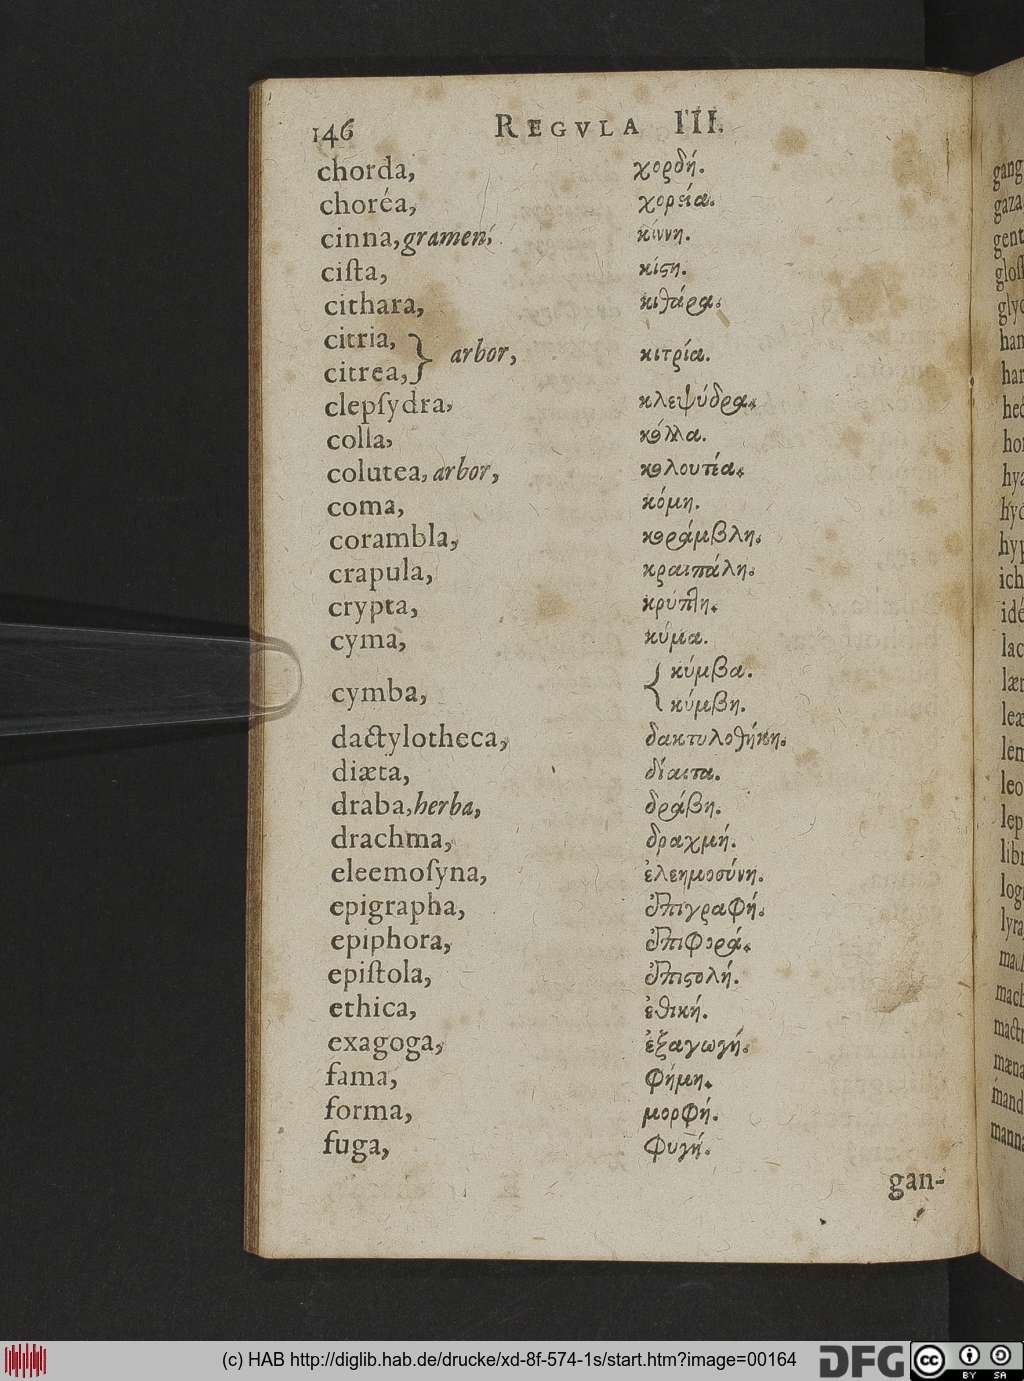 146 REGVLA III.
chorda, χορδή.
choréa, χορεία.
cinna, gramen, κίννη.
ciſta, κίϛη.
cithara, κιθάρα.
citria,
citrea, } arbor, κιτρία.
clepſydra, κλεψύδρα.
colla, κόλλα.
colutea, arbor, κολουτέα.
coma, κόμη.
corambla, κοράμβλη.
crapula, κραιπάλη.
crypta, κρύπτη.
cyma, κύμα.
cymba, { κύμβα.
κύμβη.
dactylotheca, δακτυλοθήκη.
diæta, δίαιτα.
draba, herba, δράβη.
drachma, δραχμή.
eleemoſyna, ἐλεημοσύνη.
epigrapha, ἐπιγραφή.
epiphora, ἐπιφορά.
epiſtola, ἐπιϛολή.
ethica, ἐθική.
exagoga, ἐξαγωγή.
fama, φήμη.
forma, μορφή.
fuga, φυγή.
gan-
gang
gaza
gent
gloſ
glyc
han
har
hed
hor
hya
hyd
hyp
ich
idé
lac
læn
leæ
lem
leo
lep
libr
log
lyra
mach
mactr
mæna
mand
manna
(c) HAB http://diglib.hab.de/drucke/xd-8f-574-1s/start.htm?image=00164
DFG
cc BY SA